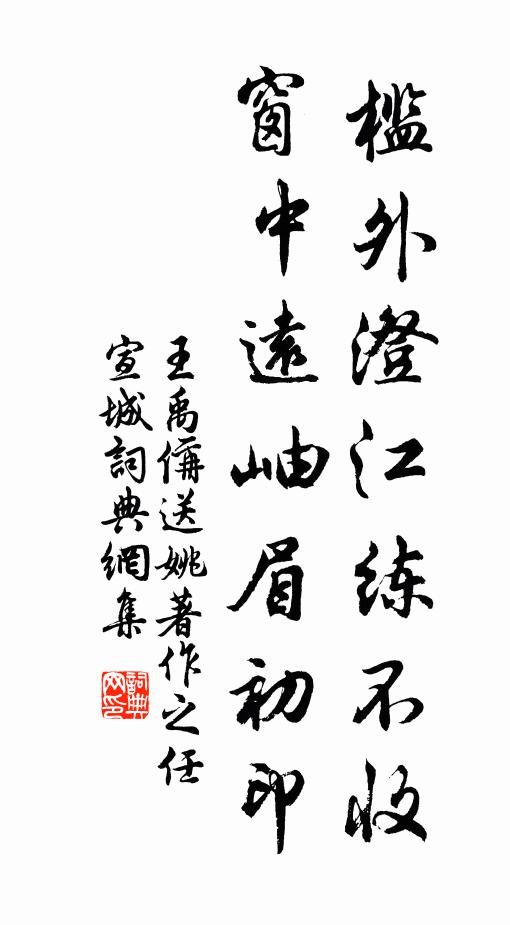 檻外澄江练不收
窗中遠岫眉初印
王禹偁送姚著作之任
宣城詞典網集
詞典网印